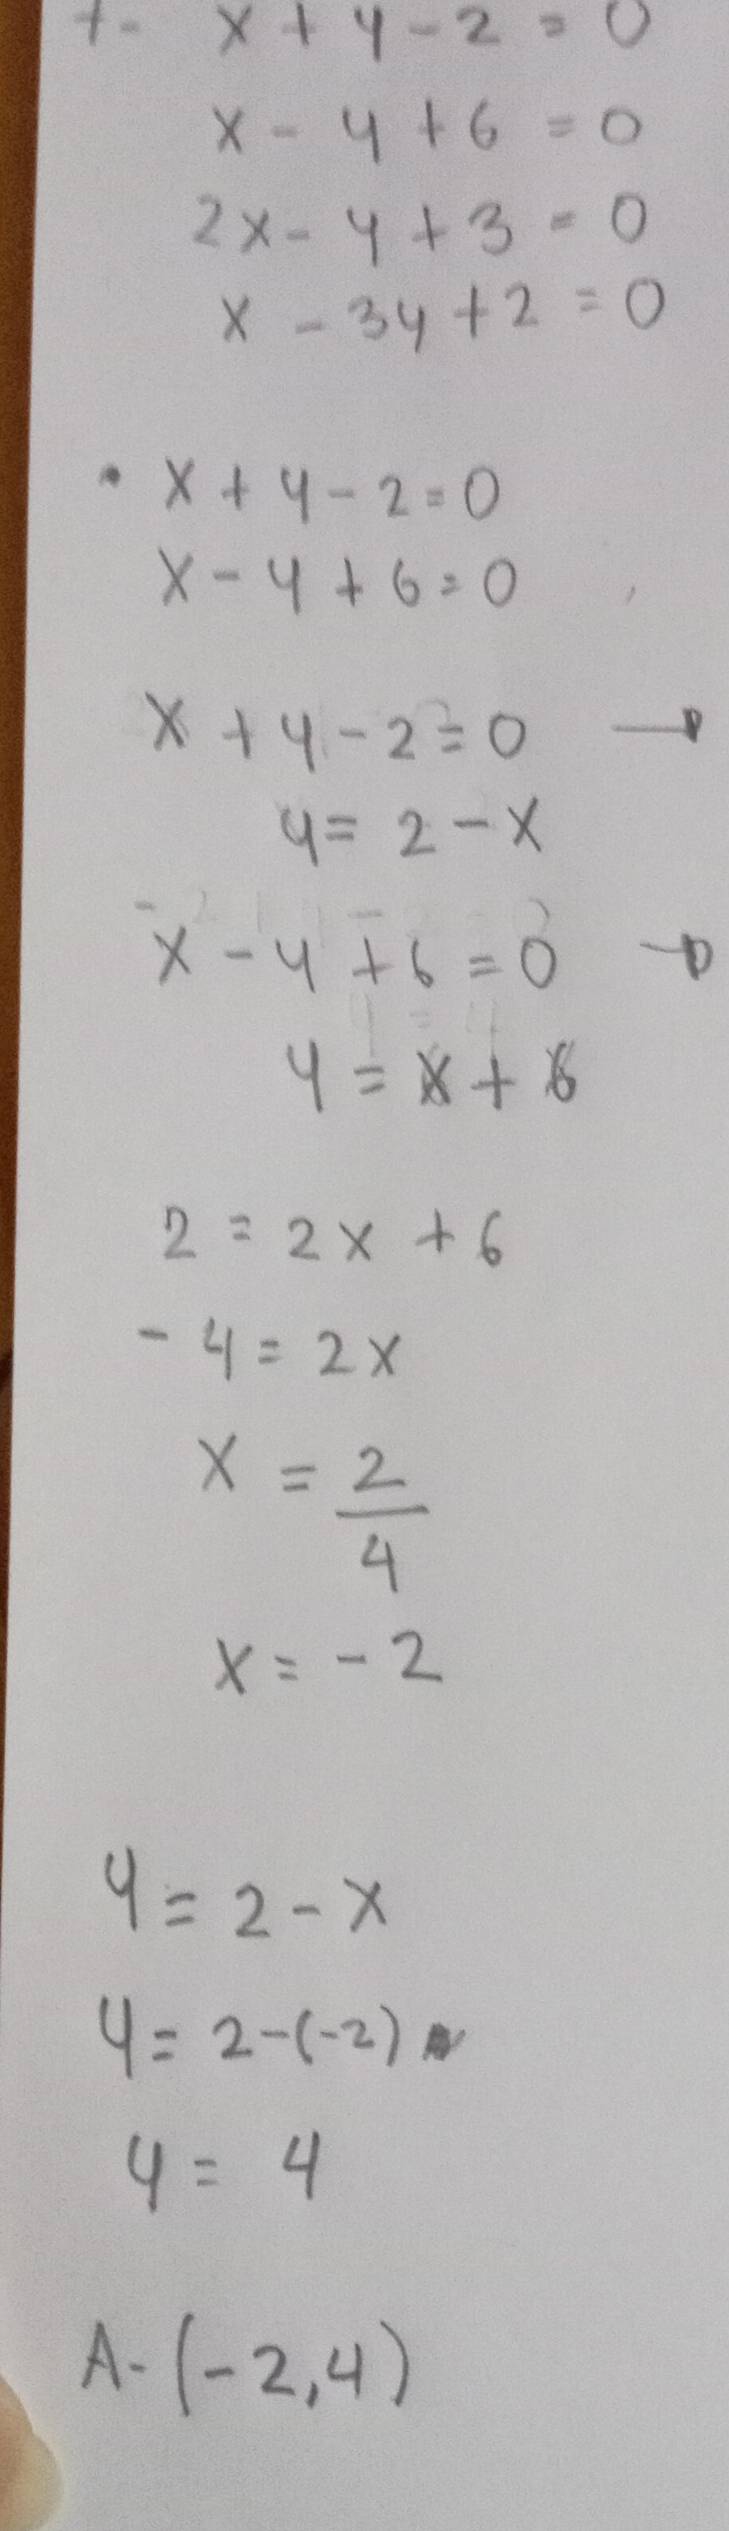 1- x + y - 2 = 0
x - y + 6 = 0
2x - y + 3 = 0
x - 3y + 2 = 0
• x + y - 2 = 0
x - y + 6 = 0
x + y - 2 = 0 →
y = 2 - x
x - y + 6 = 0 →
y = x + 6
2 = 2x + 6
- 4 = 2x
x = 2/4
x = - 2
y = 2 - x
y = 2 - (-2)
y = 4
A - (-2,4)